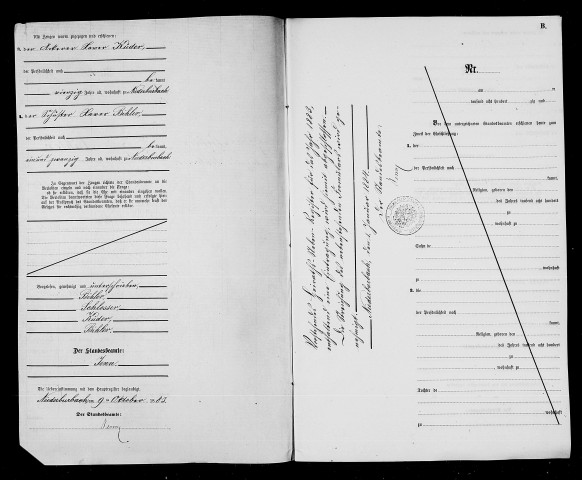 Als Zeugen waren zugezogen und erschienen:
3. der Ackerer Xaver Küder
der Persönlichkeit nach
be kannt,
vierzig Jahre alt, wohnhaft zu Niederburbach
4. der Schuster Xaver Bihler
der Persönlichkeit nach
be kannt,
zwanzig Jahre alt, wohnhaft zu Niederburbach
In Gegenwart der Zeugen richtete der Standesbeamte an die
Verlobten einzeln und nach einander die Frage:
ob sie erklären, daß sie die Ehe mit einander eingehen wollen.
Die Verlobten beantworteten diese Frage bejahend und erfolgte hier-
auf der Ausspruch des Standesbeamten, daß er sie nunmehr kraft des
Gesetzes für rechtmäßig verbundene Eheleute erkläre.
Vorgelesen, genehmigt und unterschrieben
Bihler
Schlosser
Küder
Bihler
Der Standesbeamte:
Jenn
Die Uebereinstimmung mit dem Hauptregister beglaubigt.
Niederburbach, 9ten Oktober 1883.
Der Standesbeamte:
Jenn
Vorstehendes Heiraths-Neben-Register für das Jahr 1883,
enthaltend eine Eintragung, wird hiermit abgeschlossen.
Niederburbach, den 1. Januar 1884.
Der Standesbeamte,
Jenn
B.
Nr.
am
tausend acht hundert zig und
Vor dem unterzeichneten Standesbeamten erschienen heute zum
Zweck der Eheschließung:
1. der
der Persönlichkeit nach
kannt,
Religion, geboren den
des Jahres tausend acht hundert
zu
, wohnhaft zu
Sohn de
wohnhaft
zu
2. die
der Persönlichkeit nach
kannt,
Religion, geboren den
des Jahres tausend acht hundert
zu
, wohnhaft zu
Tochter de
wohnhaft
zu